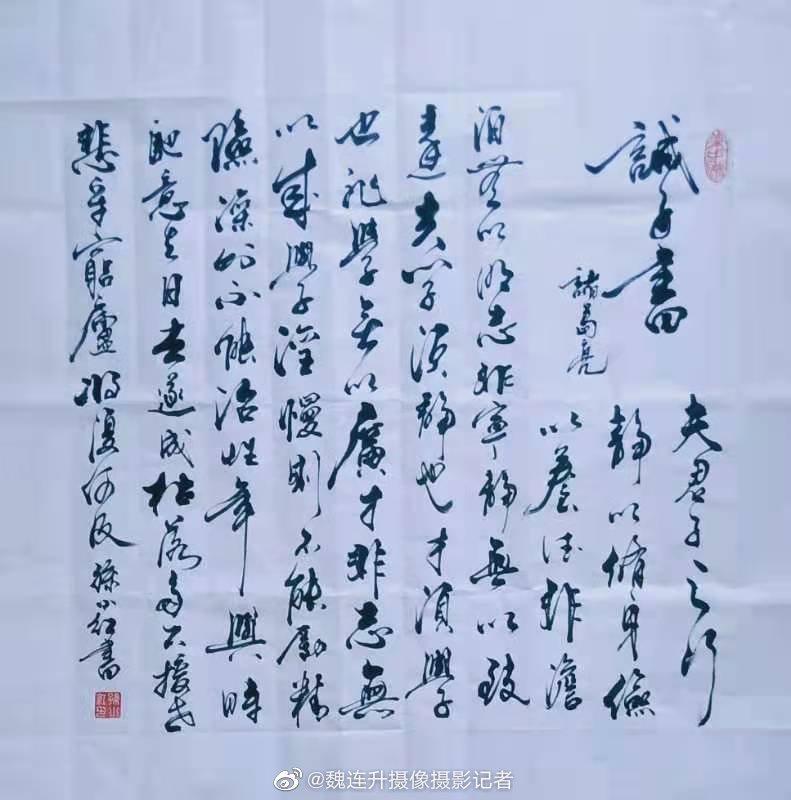 誡子書
諸葛亮
夫君子之行
靜以脩身儉
以養德非澹
泊無以明志非寧靜無以致
遠夫學須靜也才須學
也非學無以廣才非志無
以成學淫慢則不能勵精
險躁則不能治性年與時
馳意与日去遂成枯落多不接世
悲守窮廬將復何及 小红書
@魏连升摄像摄影记者